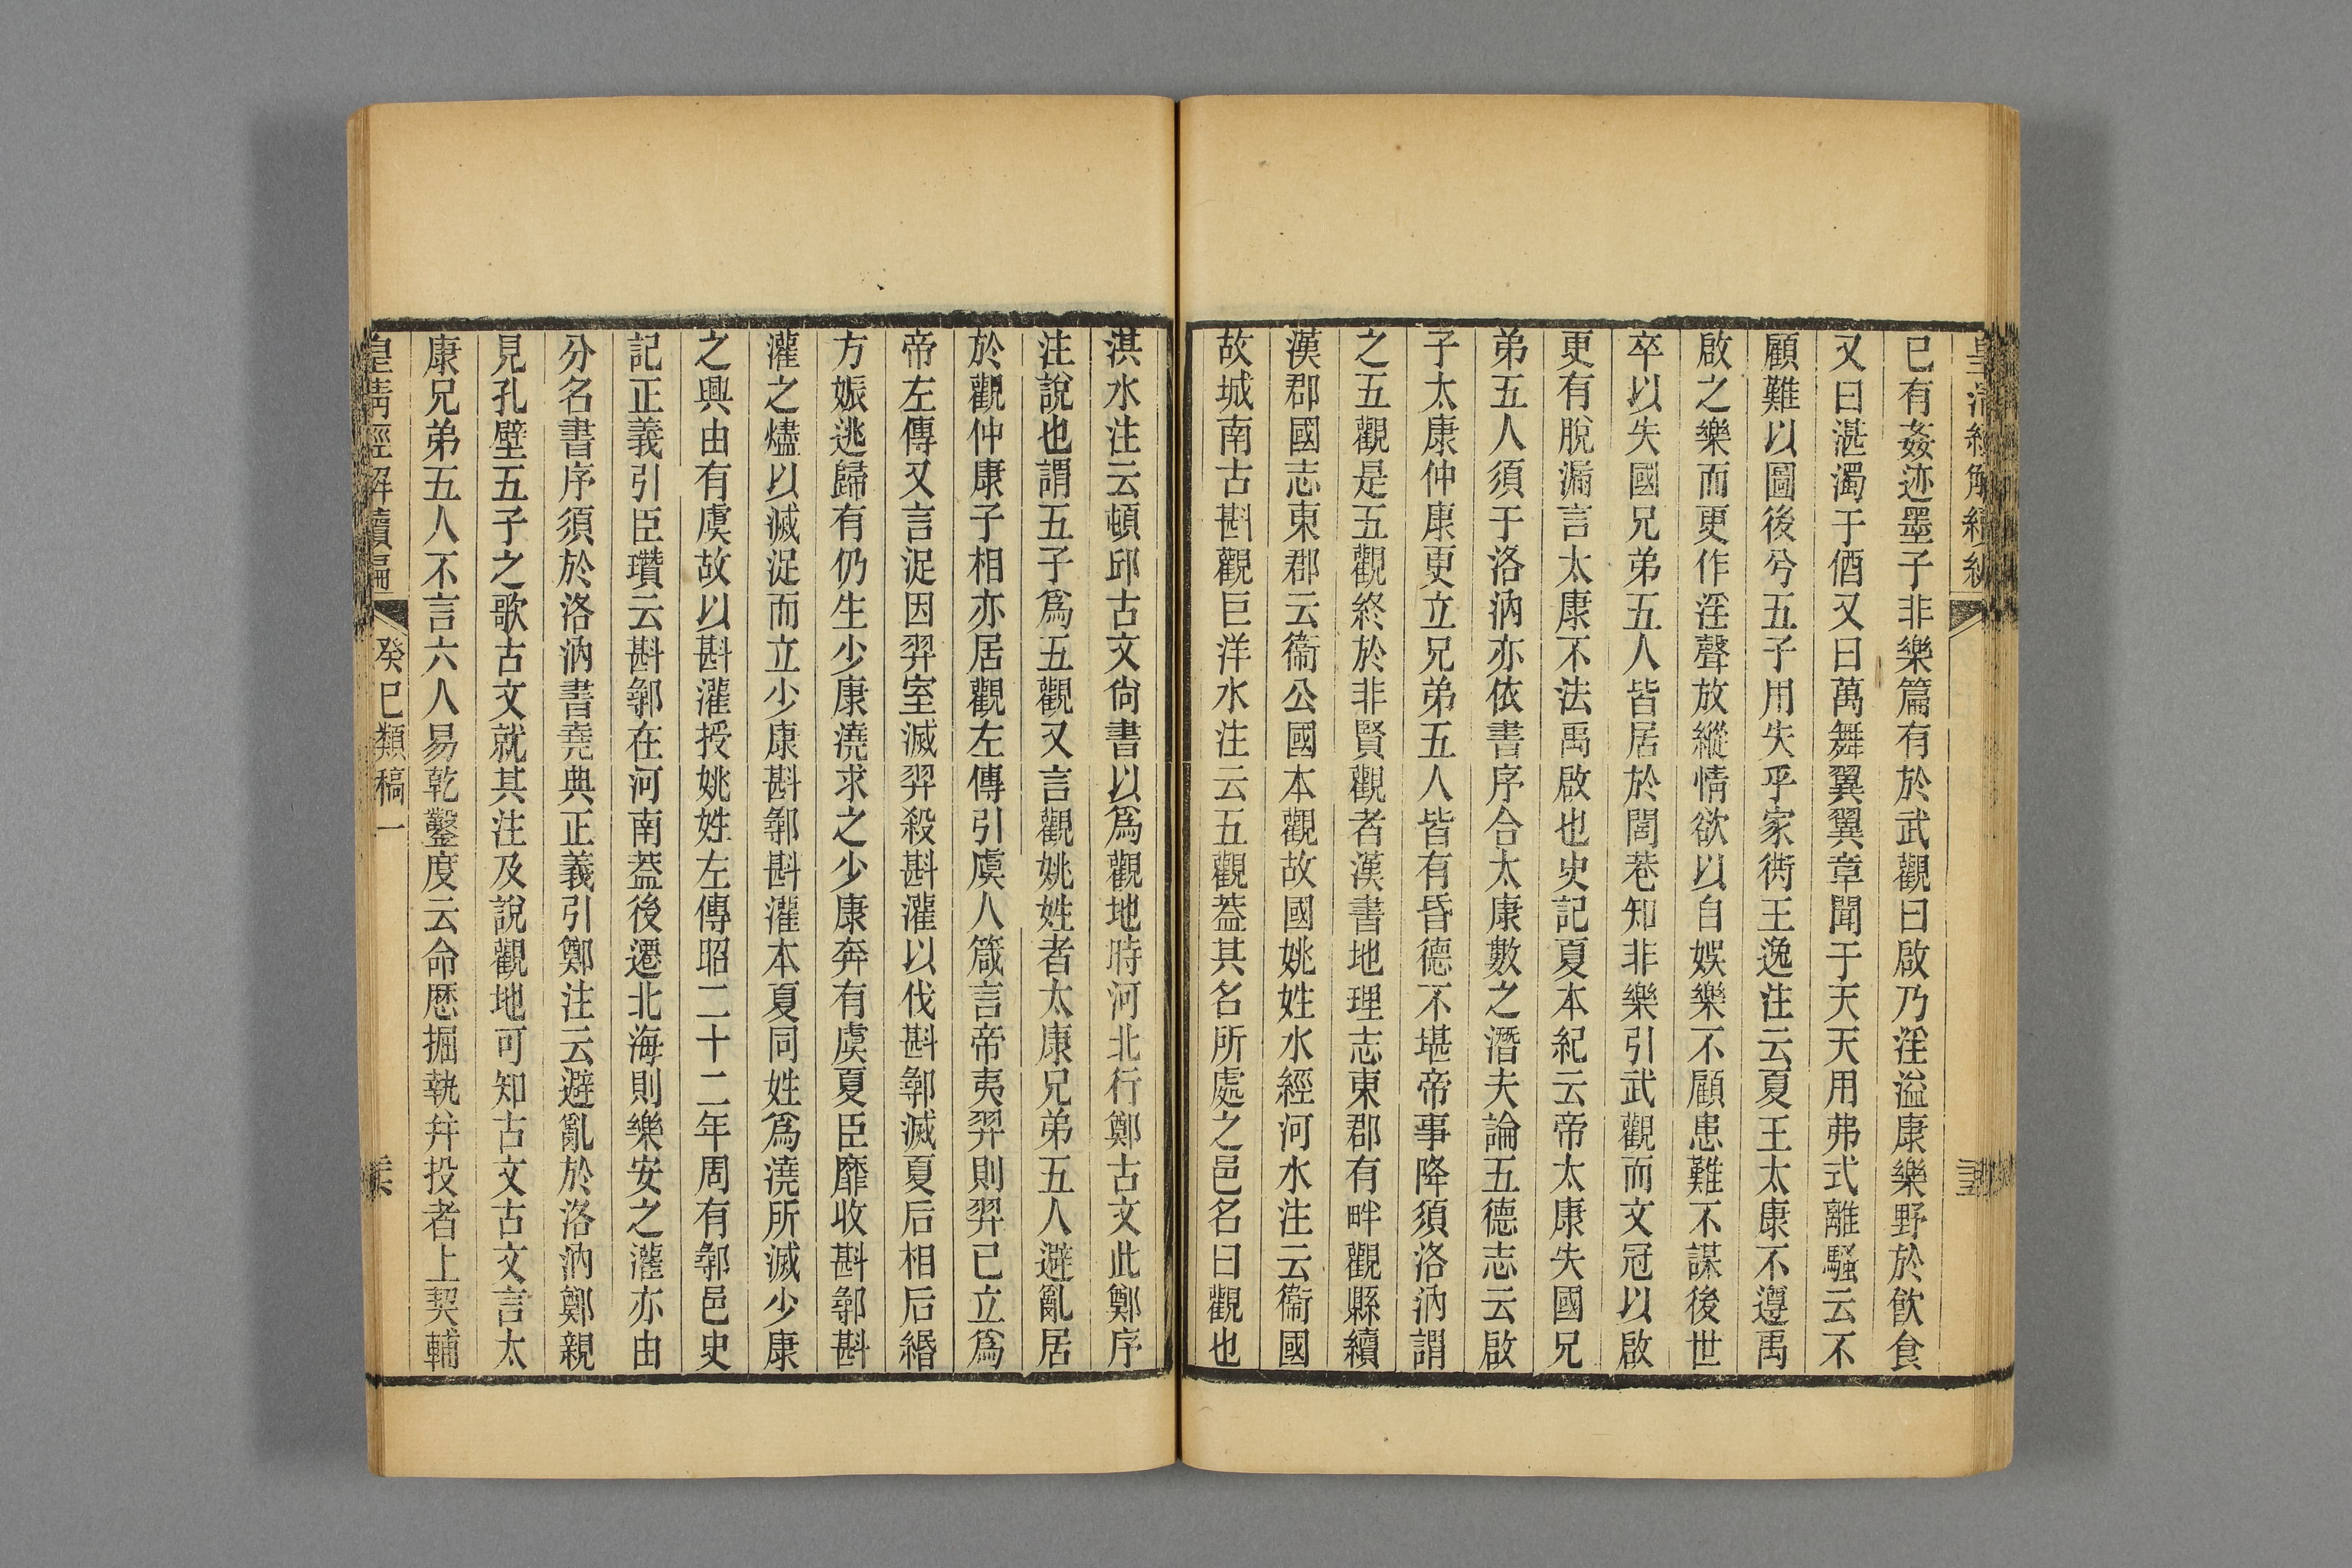 已有姦迹墨子非樂篇有於武觀曰啟乃淫溢康樂野於飲食
又曰湛濁于酒又曰萬舞翼翼章聞于天天用弗式離騷云不
顧難以圖後兮五子用失乎家衖王逸注云夏王太康不遵禹
啟之樂而更作淫聲放縱情欲以自娛樂不顧患難不謀後世
卒以失國兄弟五人皆居於閭巷知非樂引武觀而文冠以啟
更有脫漏言太康不法禹啟也史記夏本紀云帝太康失國兄
弟五人須于洛汭亦依書序合太康數之潛夫論五德志云啟
子太康仲康更立兄弟五人皆有昏德不堪帝事降須洛汭謂
之五觀是五觀終於非賢觀者漢書地理志東郡有畔觀縣續
漢郡國志東郡云衞公國本觀故國姚姓水經河水注云衞國
故城南古斟觀巨洋水注云五觀葢其名所處之邑名曰觀也
淇水注云頓邱古文尙書以爲觀地時河北行鄭古文此鄭序
注說也謂五子爲五觀又言觀姚姓者太康兄弟五人避亂居
於觀仲康子相亦居觀左傳引虞人箴言帝夷羿則羿已立爲
帝左傳又言浞因羿室滅羿殺斟灌以伐斟鄩滅夏后相后緡
方娠逃歸有仍生少康澆求之少康奔有虞夏臣靡收斟鄩斟
灌之燼以滅浞而立少康斟鄩斟灌本夏同姓爲澆所滅少康
之興由有虞故以斟灌授姚姓左傳昭二十二年周有鄩邑史
記正義引臣瓚云斟鄩在河南葢後遷北海則樂安之灌亦由
分名書序須於洛汭書堯典正義引鄭注云避亂於洛汭鄭親
見孔壁五子之歌古文就其注及說觀地可知古文古文言太
康兄弟五人不言六人易乾鑿度云命歷掘執幷投者上契輔
皇淸經解續編
癸巳類稿一